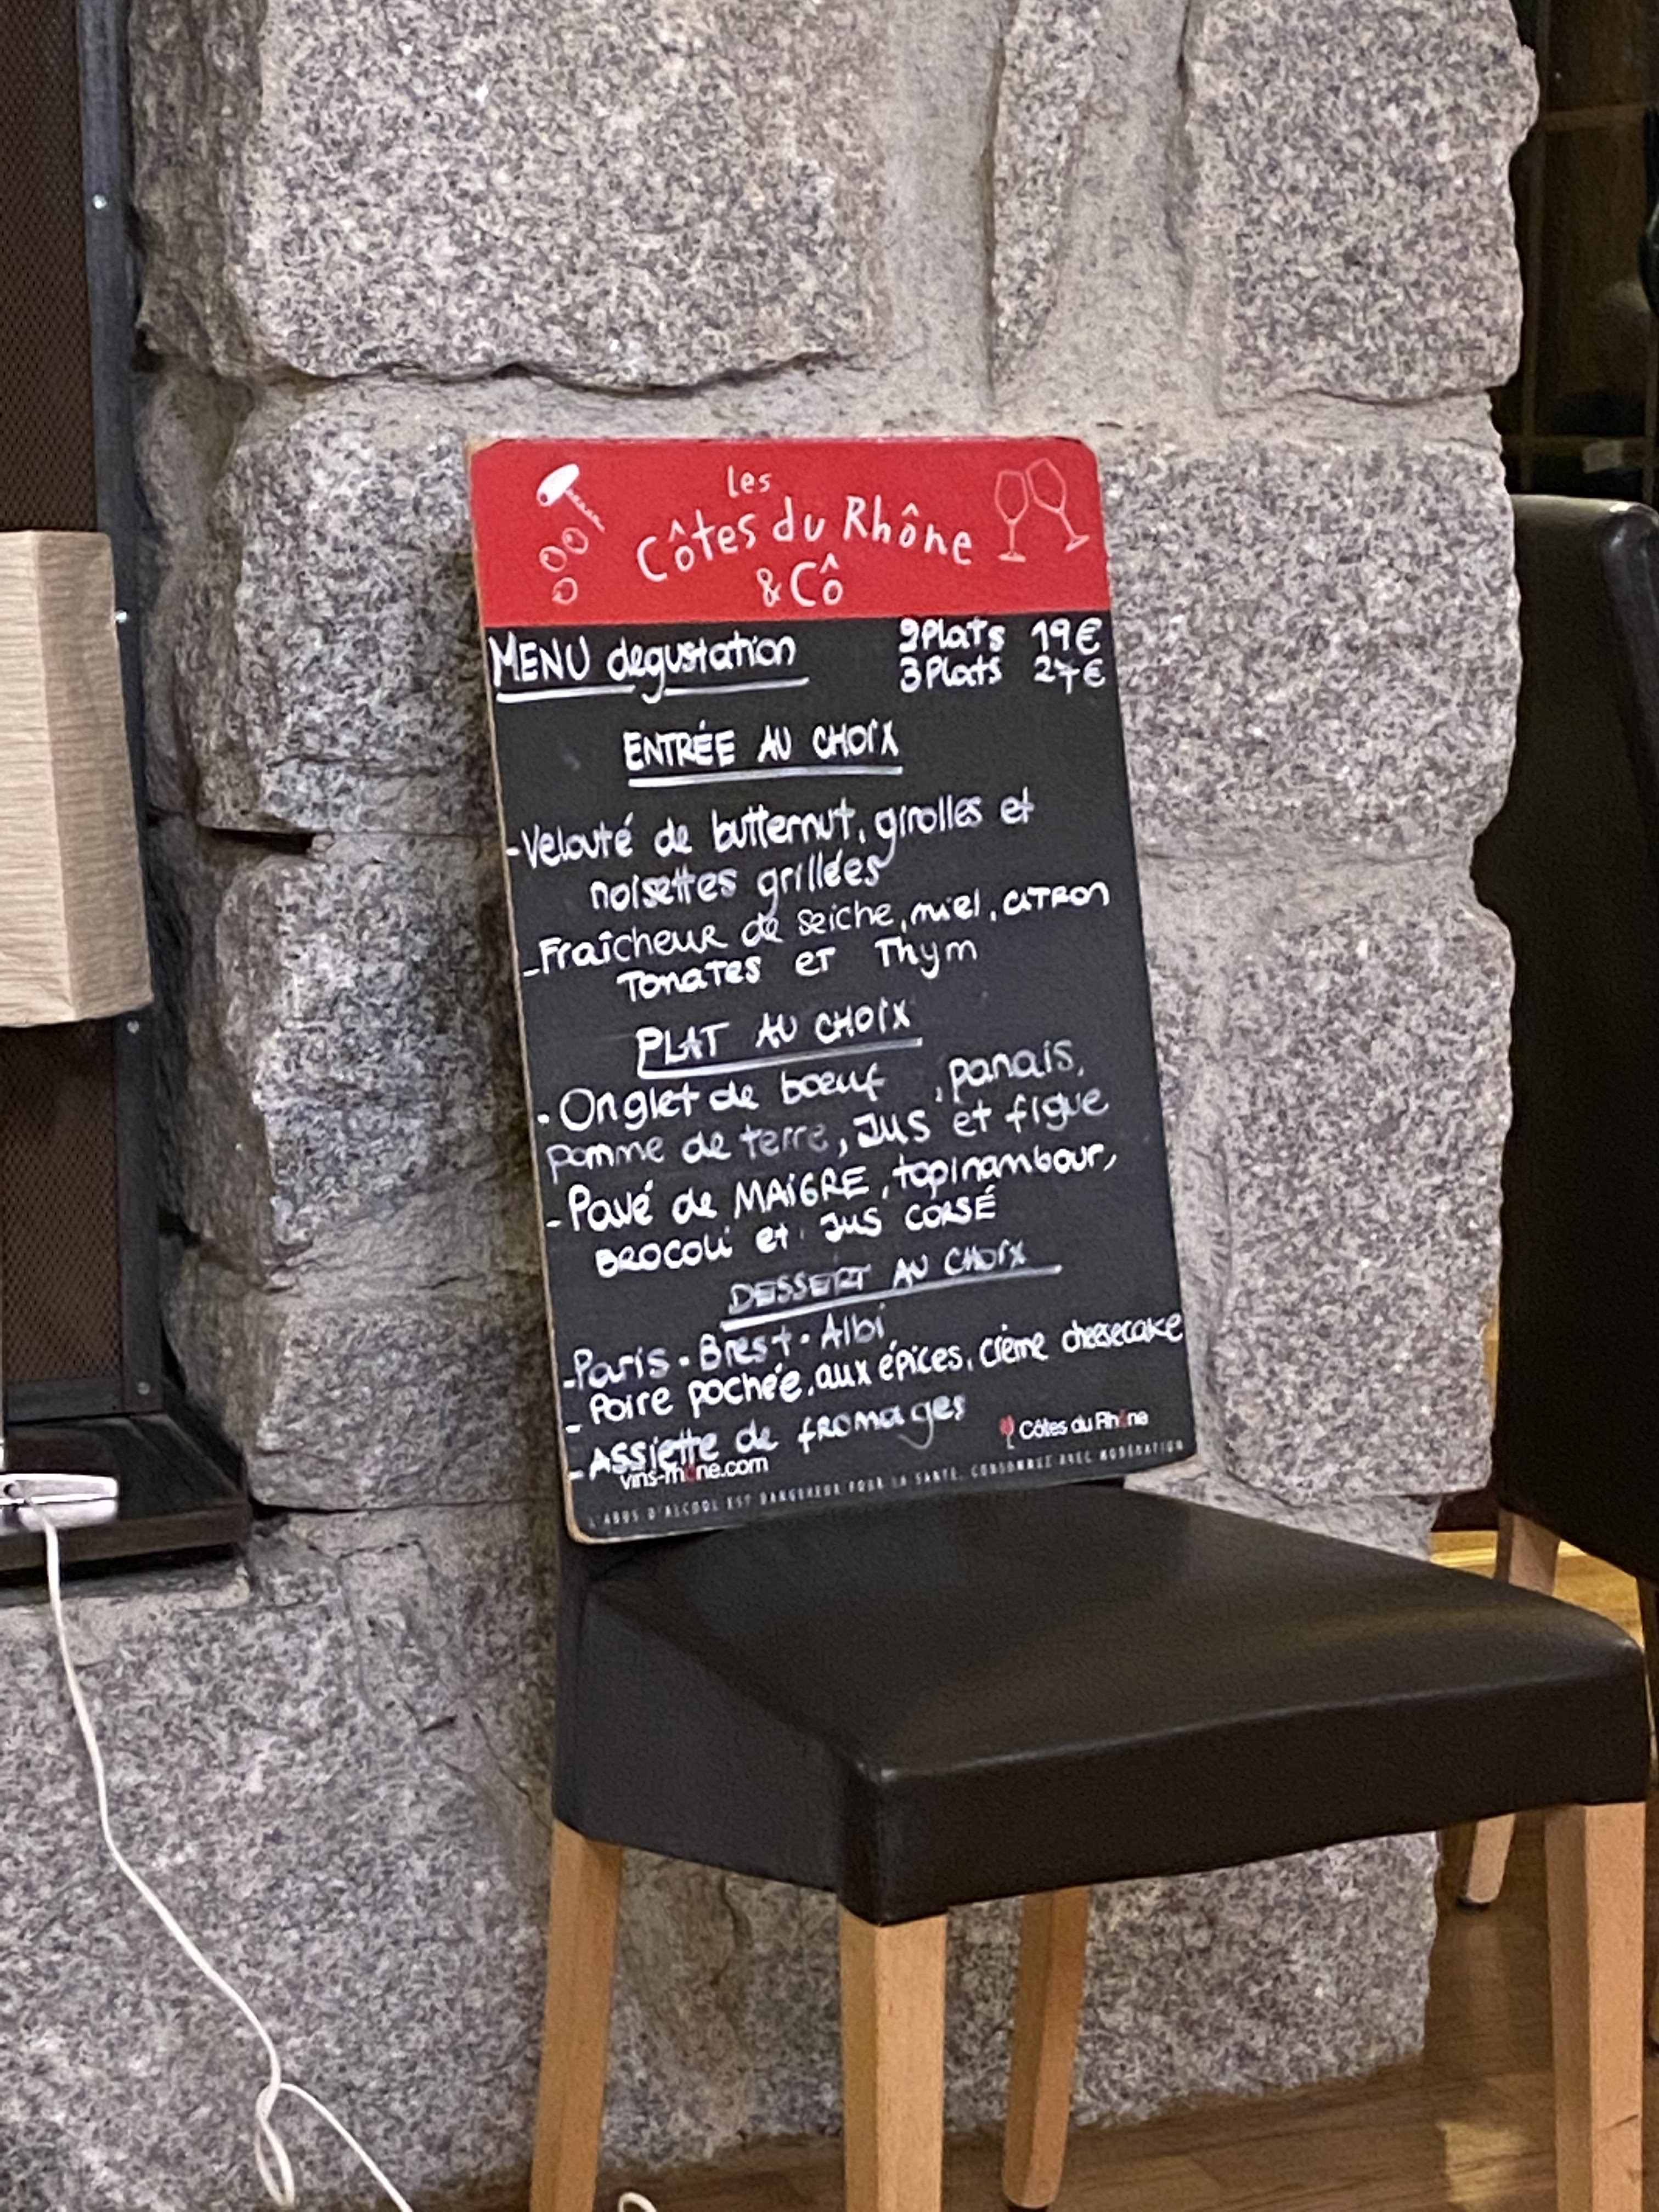 les
Côtes du Rhône
& Cô
MENU degustation
2Plats 19€
3Plats 27€
ENTRÉE AU CHOIX
-Velouté de butternut, girolles et
noisettes grillées
-Fraîcheur de seiche, miel, CITRON
Tomates et Thym
PLAT AU CHOIX
- Onglet de bœuf , panais,
pomme de terre, JUS et figue
- Pavé de MAIGRE, topinambour,
BROCOLi et JUS CORSÉ
DESSERT AU CHOIX
-Paris - Brest - Albi
- Poire pochée, aux épices, crème cheesecake
-Assiette de fromages
Côtes du Rhône
vins-rhône.com
L'ABUS D'ALCOOL EST DANGEREUX POUR LA SANTÉ, CONSOMMER AVEC MODÉRATION